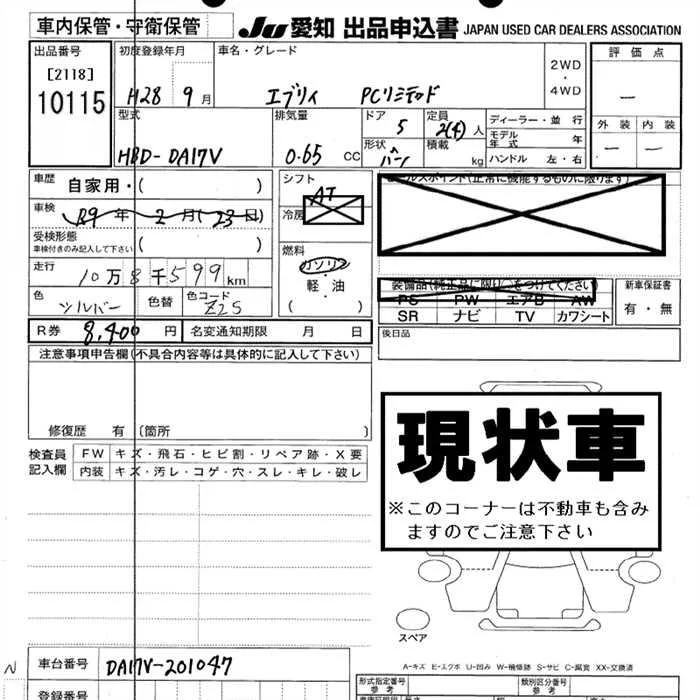 車内保管・守衛保管
JU 愛知 出品申込書 JAPAN USED CAR DEALERS ASSOCIATION
出品番号
[2118]
10115
初度登録年月
H28 9月
車名・グレード
エブリイ PCリミテッド
2WD
・
4WD
評価点
―
外装 内装
― ―
型式
HBD-DA17V
排気量
0.65 CC
ドア
5
形状
バン
定員
2(4)人
積載
kg
ディーラー・並行
モデル年式 年
ハンドル 左・右
車歴 自家用・( )
車検 R9年2月(23日)
受検形態
車検付きのみ記入して下さい ( )
走行 10万8千599km
色 シルバー
色替
色コード Z2S
シフト AT
冷房
燃料
ガソリン
・
軽・油
( )
セールスポイント(正常に機能するものに限ります)
装備品(純正品に限り○をつけてください)
PS PW エアB AW
SR ナビ TV カワシート
新車保証書
有・無
R券 8,400円
名変通知期限 月 日
後日品
注意事項申告欄(不具合内容等は具体的に記入して下さい)
修復歴 有 〔箇所 〕
検査員記入欄
FW キズ・飛石・ヒビ割・リペア跡・X要
内装 キズ・汚レ・コゲ・穴・スレ・キレ・破レ
現状車
※このコーナーは不動車も含み
ますのでご注意下さい
スペア
A-キズ E-エクボ U-凹み W-補修跡 S-サビ C-腐食 XX-交換済
N
車台番号 DA17V-201047
登録番号
形式指定番号
参考
類別区分番号
参考